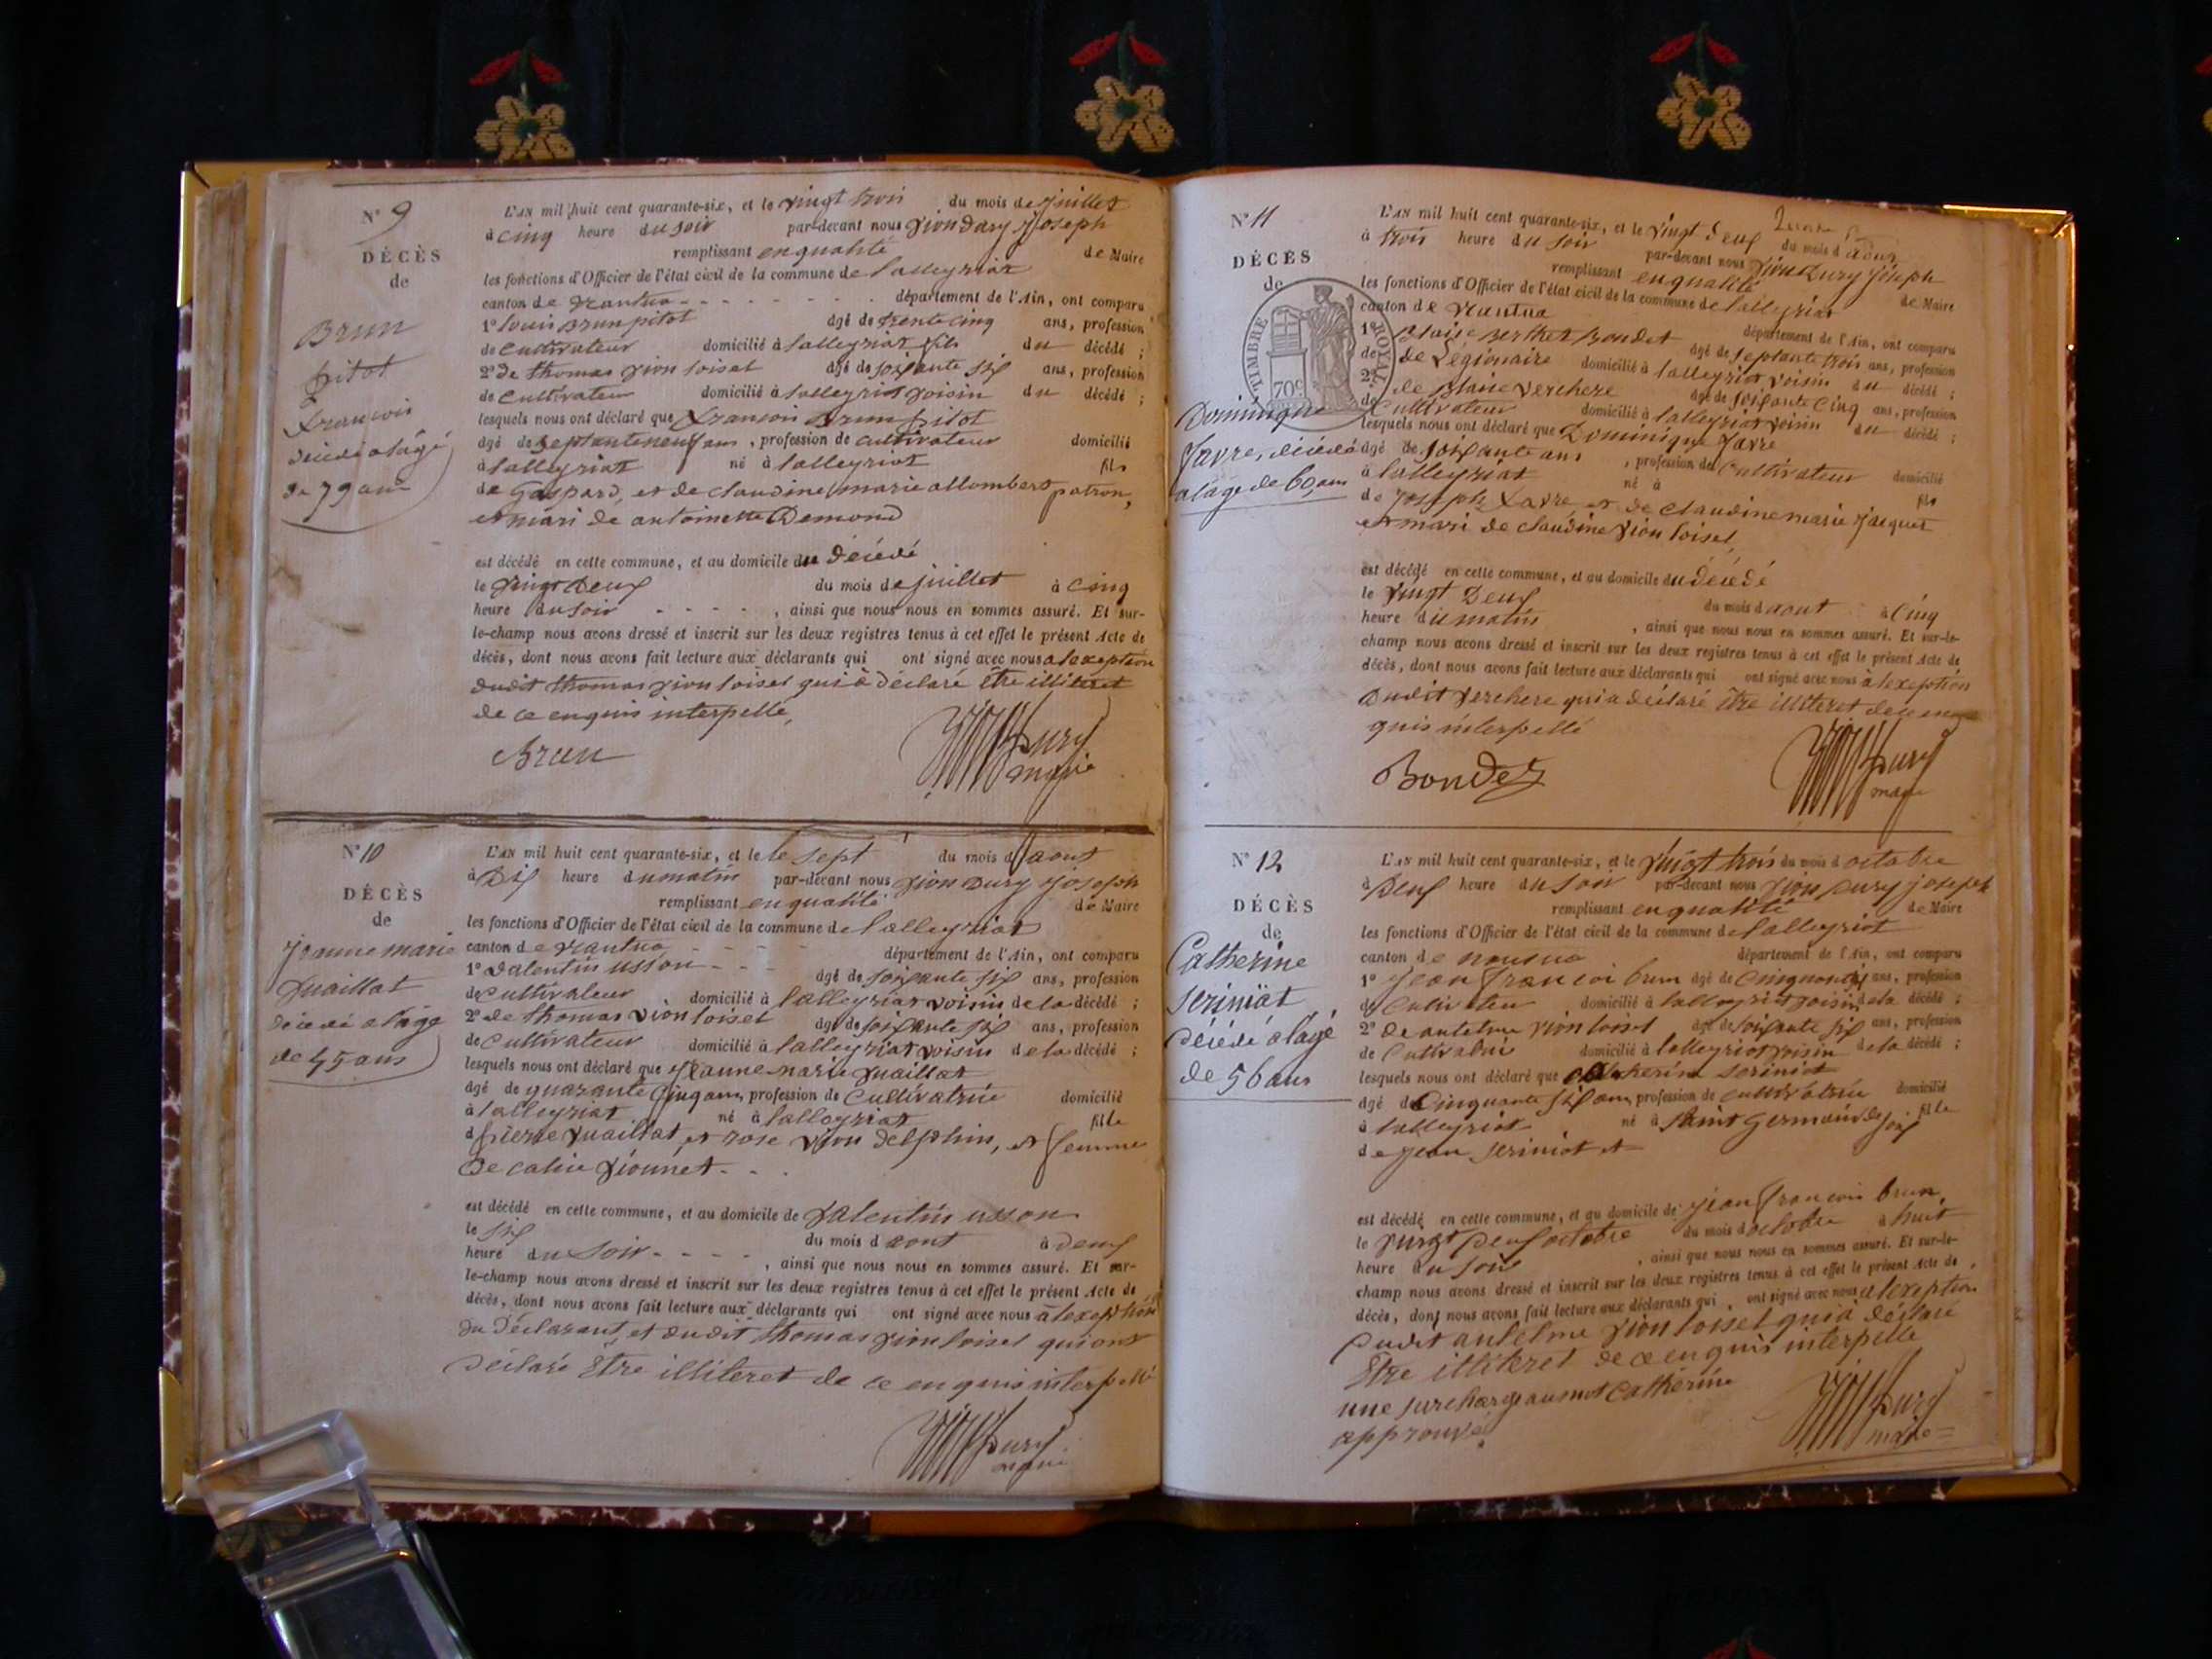 Nº 9
DÉCÈS
de
Brun
pitot
françois
décédé a lâgé
de 79 ans
L'AN mil huit cent quarante-six, et le vingt trois du mois de juillet
à cinq heure du soir par-devant nous vion dury joseph
remplissant en qualité de Maire
les fonctions d'Officier de l'état civil de la commune de lalleyriat
canton de nantua département de l'Ain, ont comparu
1º louis Brun pitot âgé de trente cinq ans, profession
de cultivateur domicilié à lalleyriat fils du décédé ;
2º de thomas vion loisel âgé de soixante six ans, profession
de cultivateur domicilié à lalleyriat voisin du décédé ;
lesquels nous ont déclaré que françois Brun pitot
âgé de septanteneuf ans, profession de cultivateur domicilié
à lalleyriat né à lalleyriat fils
de Gaspard, et de claudine marie allombert patron,
et mari de antoinette Demond
est décédé en cette commune, et au domicile du décédé
le vingt Deux du mois de juillet à cinq
heure du soir - - - - , ainsi que nous nous en sommes assuré. Et sur-
le-champ nous avons dressé et inscrit sur les deux registres tenus à cet effet le présent Acte de
décès, dont nous avons fait lecture aux déclarants qui ont signé avec nous a lexeption
dudit thomas vion loisel qui à déclaré être illiteret
de ce enquis interpellé,
Brun
Dury
maire
Nº 10
DÉCÈS
de
jeanne marie
Juaillat
décédé a lâge
de 45 ans
L'AN mil huit cent quarante-six, et le le sept du mois d aout
à Dix heure du matin par-devant nous vion Dury joseph
remplissant en qualité de Maire
les fonctions d'Officier de l'état civil de la commune de lalleyriat
canton de nantua - - - - département de l'Ain, ont comparu
1º valentin usson - - - âgé de soixante six ans, profession
de cultivateur domicilié à lalleyriat voisin de la décédé ;
2º de thomas vion loisel âgé de soixante six ans, profession
de cultivateur domicilié à lalleyriat voisin de la décédé ;
lesquels nous ont déclaré que jeanne marie Juaillat
âgé de quarante cinq ans, profession de cultivatrice domicilié
à lalleyriat né à lalleyriat fille
d pierre Juaillat, et rose vion delphin, et femme
De vionnet - - .
est décédé en cette commune, et au domicile de valentin usson
le six du mois d aout à deux
heure du soir - - - - , ainsi que nous nous en sommes assuré. Et sur-
le-champ nous avons dressé et inscrit sur les deux registres tenus à cet effet le présent Acte de
décès, dont nous avons fait lecture aux déclarants qui ont signé avec nous a lexeption
du Déclarant, et dudit thomas vion loisel qui ont
déclaré être illiteret de ce enquis interpellé
Dury
maire
Nº 11
DÉCÈS
de
TIMBRE ROYAL
70c
Dominique
favre, décédé
a lâge de 60 ans
L'AN mil huit cent quarante-six, et le vingt deux du mois d aout
à trois heure du soir par-devant nous vion Dury joseph
remplissant en qualité de Maire
les fonctions d'Officier de l'état civil de la commune de lalleyriat
canton de nantua département de l'Ain, ont comparu
1º Blaise Berthet Bondet âgé de septante trois ans, profession
de de Légionaire domicilié à lalleyriat voisin du décédé ;
2º de Blaise verchere âgé de soixante cinq ans, profession
de cultivateur domicilié à lalleyriat voisin du décédé ;
lesquels nous ont déclaré que Dominique favre
âgé de soixante ans , profession de cultivateur domicilié
à lalleyriat né à fils
de joseph favre, et de claudine marie jacquet
et mari de claudine vion loisel,
est décédé en cette commune, et au domicile du décédé
le vingt Deux du mois d aout à cinq
heure du matin , ainsi que nous nous en sommes assuré. Et sur-le-
champ nous avons dressé et inscrit sur les deux registres tenus à cet effet le présent Acte de
décès, dont nous avons fait lecture aux déclarants qui ont signé avec nous a lexeption
Dudit verchere qui a déclaré être illiteret de ce en
quis interpellé
Bondet
Dury
maire
Nº 12
DÉCÈS
de
Catherine
seriniat
Décédé a lagé
de 56 ans
L'AN mil huit cent quarante-six, et le vingt trois du mois d octobre
à Deux heure du soir par-devant nous vion Dury joseph
remplissant en qualité de Maire
les fonctions d'Officier de l'état civil de la commune de lalleyriat
canton de nantua département de l'Ain, ont comparu
1º jean françoi brun âgé de ans, profession
de cultivateur domicilié à lalleyriat voisin de la décédé ;
2º De antelme vion loisel âgé de soixante six ans, profession
de domicilié à lalleyriat voisin de la décédé ;
lesquels nous ont déclaré que catherine seriniat
âgé de cinquante six ans, profession de cultivatrice domicilié
à lalleyriat né à saint germain de joux fille
de jean seriniat et
est décédé en cette commune, et au domicile de jean françois brun,
le vingt Deux octobre du mois d octobre à huit
heure du soir , ainsi que nous nous en sommes assuré. Et sur-le-
champ nous avons dressé et inscrit sur les deux registres tenus à cet effet le présent Acte de
décès, dont nous avons fait lecture aux déclarants qui ont signé avec nous a lexeption
Dudit antelme vion loisel qui à déclaré
être illiteret de ce enquis interpellé
une surcharge au mot Catherine
approuvé
Dury
maire